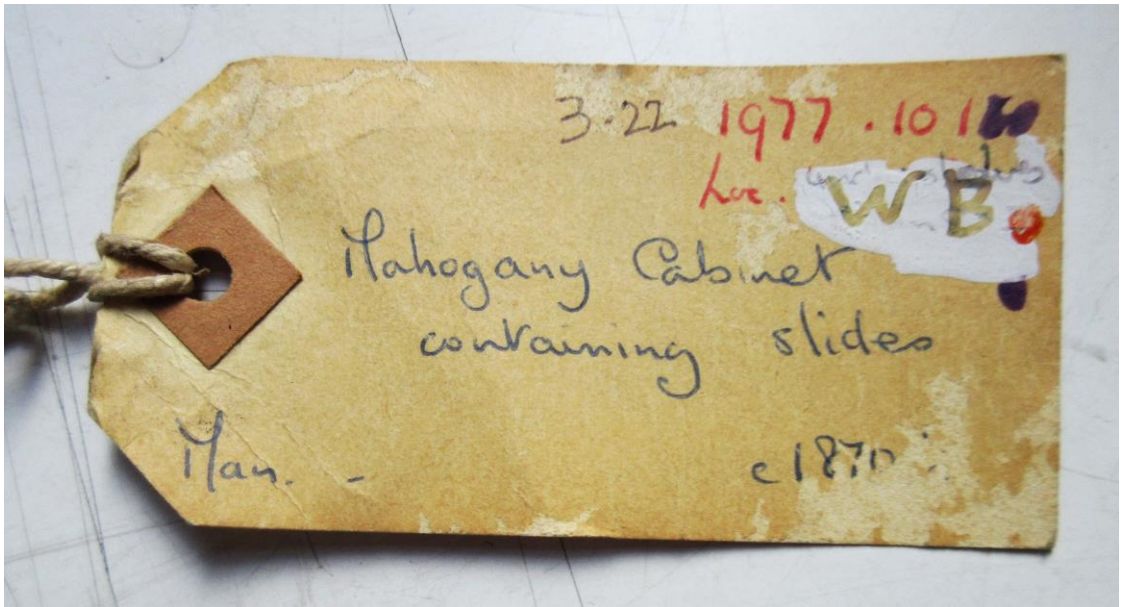 3.22 1977.101
Loc. WB
Mahogany Cabinet
containing slides
Man. - c1870